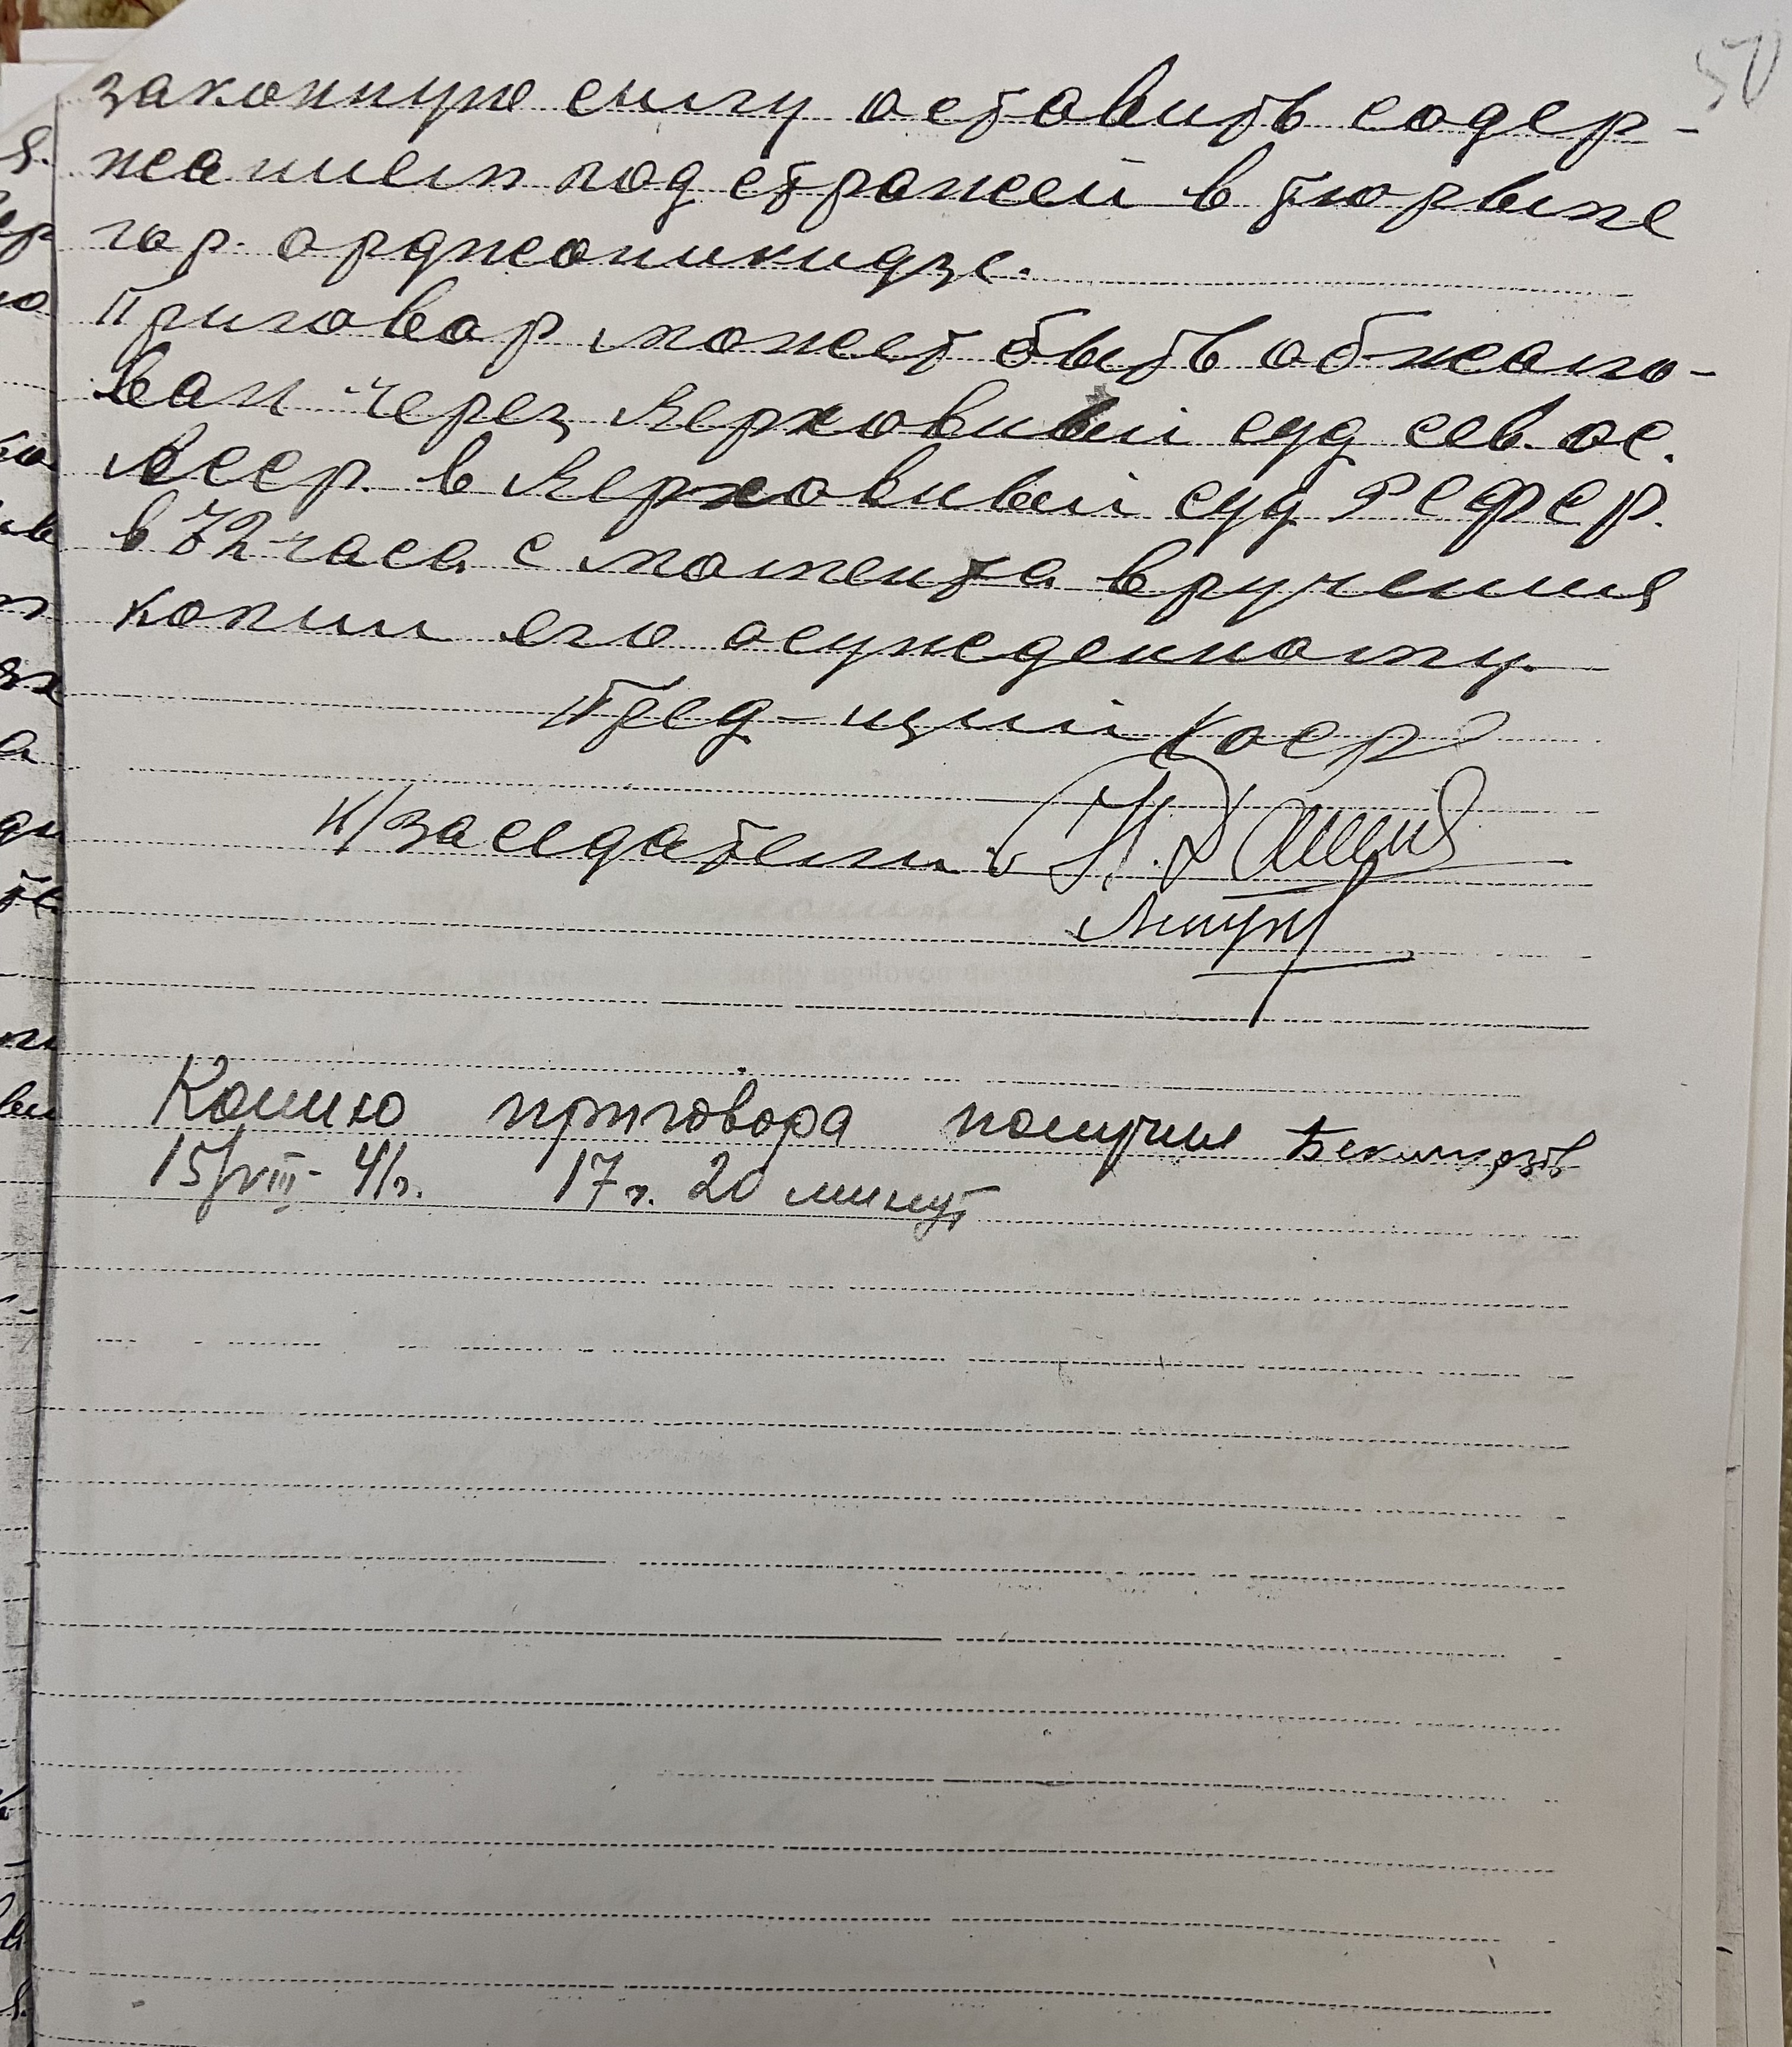 50
законную силу оставить содер-
жанием под стражей в тюрьме
гор. орджоникидзе.
Приговор может быть обжало-
ван через Верховный суд сев. ос.
Асср. в Верховный суд РСФСР.
в 72 часа с момента вручения
копии его осужденному.
Пред-щий
н/заседатели:
Копию приговора получил Бекмурзов
15/VIII-41г. 17 ч. 20 минут